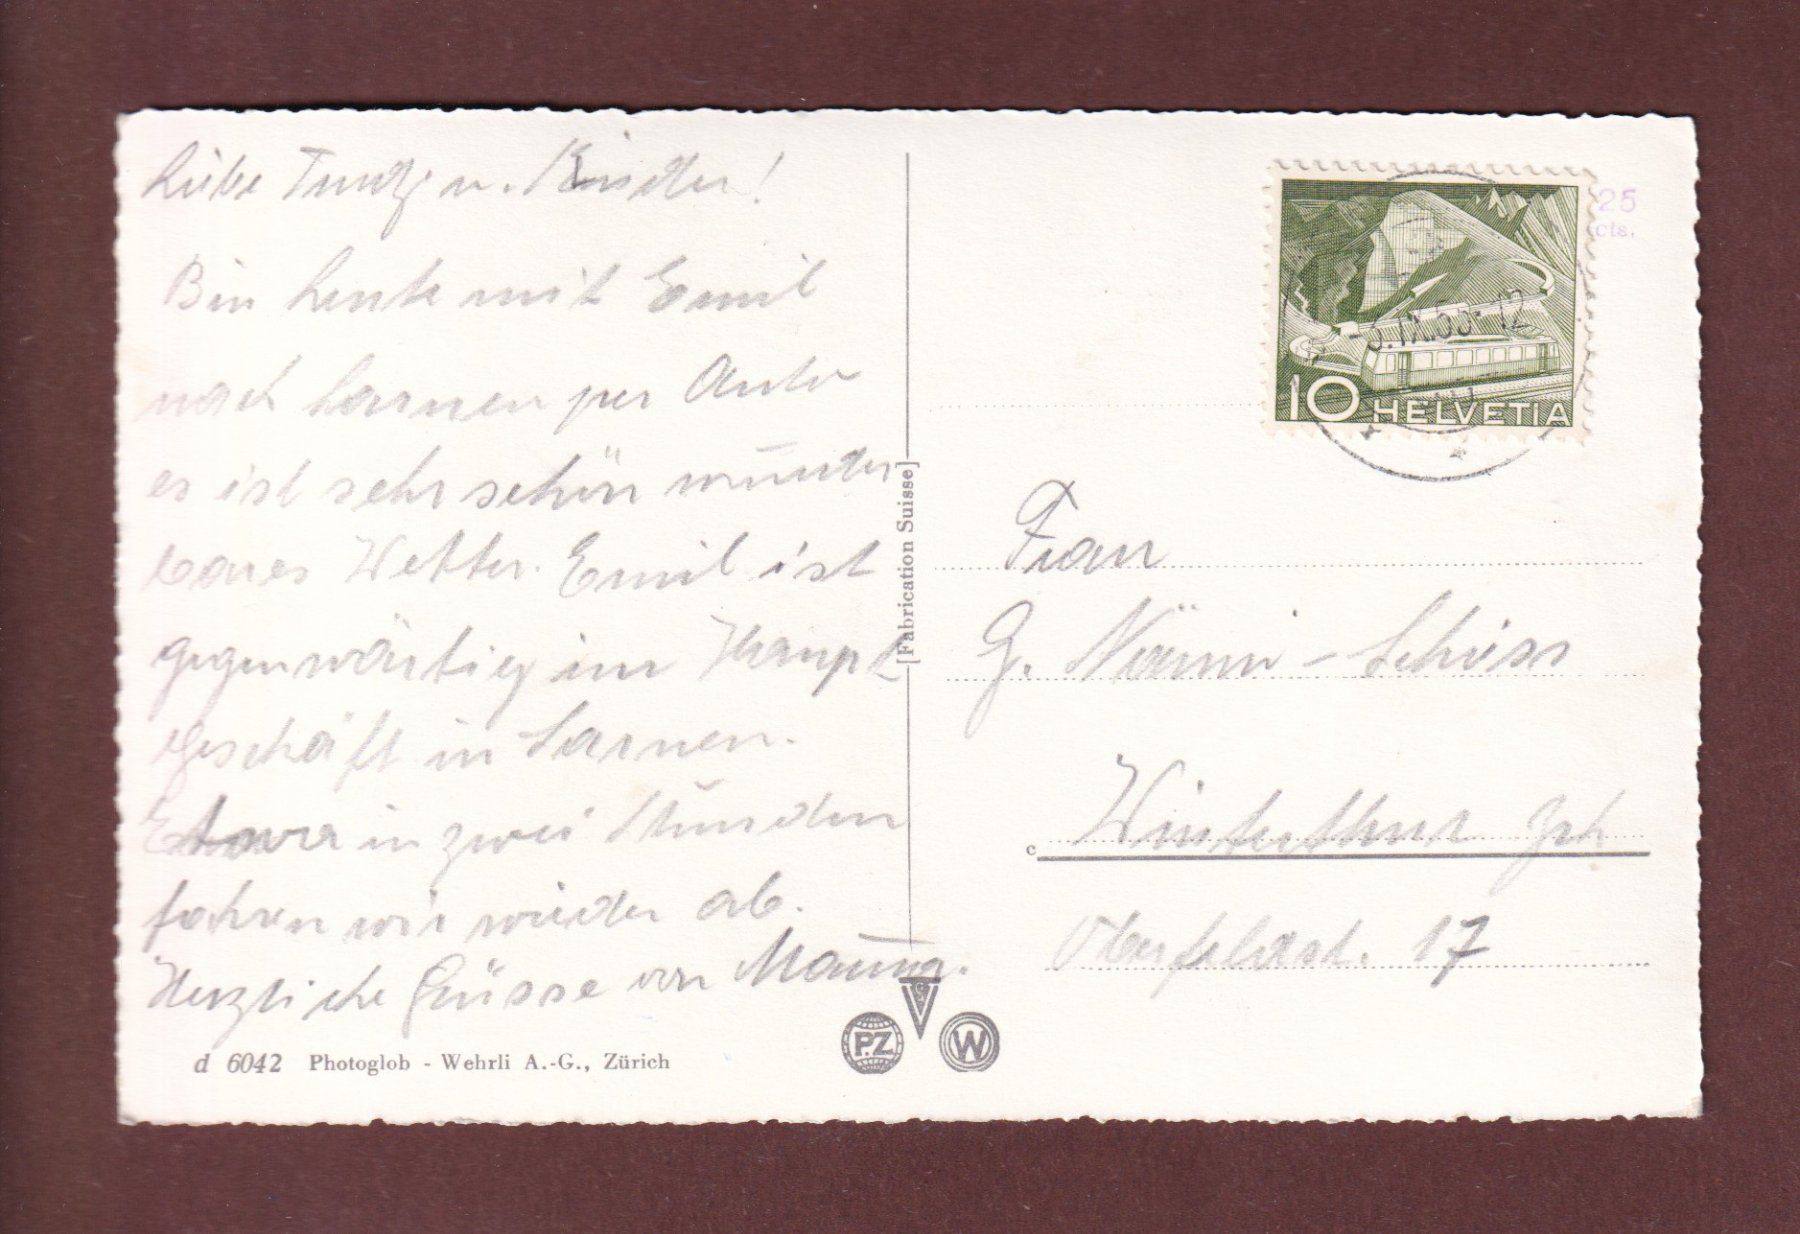 Liebe Trudy u. Kinder!
Bin heute mit Emil
nach Sarnen per Auto
es ist sehr schön wunder
bares Wetter. Emil ist
gegenwärtig im Haupt
geschäft in Sarnen.
Etwa in zwei Stunden
fahren wir wieder ab.
Herzliche Grüsse von
d 6042 Photoglob - Wehrli A.-G., Zürich
[Fabrication Suisse]
P.Z.
G
W
25
cts.
-3.IX.55-12
10 HELVETIA
Frau
G. Näumi - Schiess
c
Winterthur Zch
Oberfeldst. 17